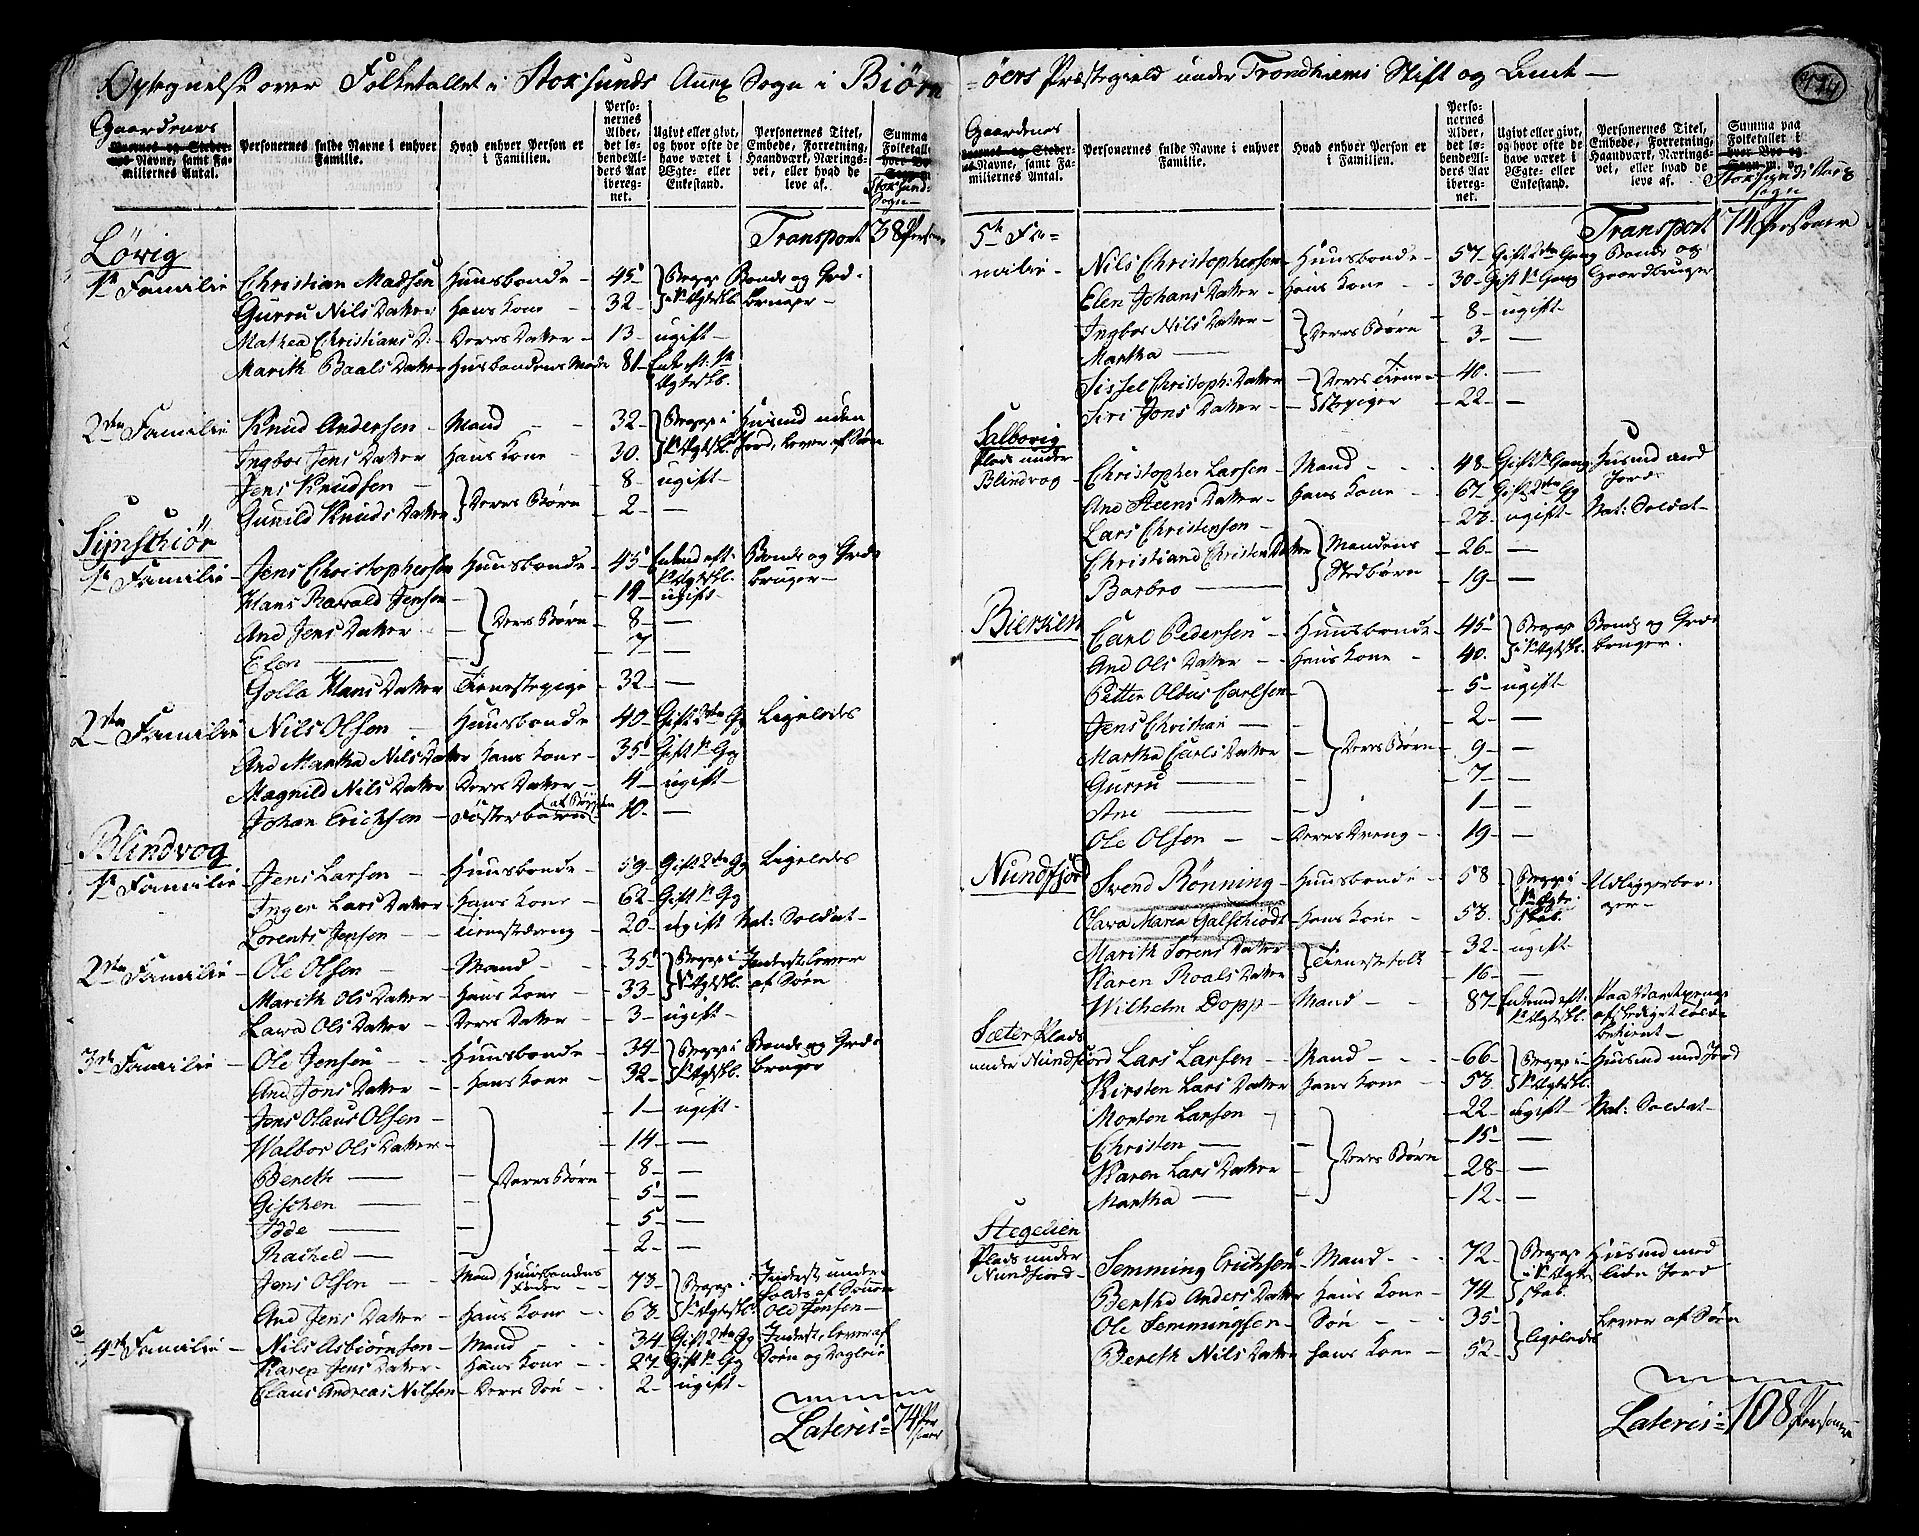 Optegnelse over Folketallet i Stoksunds Anex Sogn i Biørn
Gaardenes
Navne, samt Familiernes Antal.
Personernes fulde Navne i enhver Familie.
Hvad enhver Person er i Familien.
Personernes Alder, det løbende Alders Aar iberegnet.
Ugivt eller givt, og hvor ofte de have været i Ægte- eller Enkestand.
Personernes Titel, Embede, Forretning, Haandværk, Næringsvei, eller hvad de leve af.
Summa Folketallet
Stoksund Sogn
Transport 38 Personer
Lövig
1te Familie Christian Madsen Huusbonde 45 Begge i 1te Ægteskb. Bonde og Grd-bruger
Gurru Nils Datter Hans Kone 32
Mathea Christians D: Deres Datter 13 ugift
Marith Baals Datter Husbondens Mode 81 Enke eft. 1te Ægteskb.
2den Familie Knud Andersen Mand 32 Begge i 1te Ægteskb. Husmd uden Jord, lever af Søen
Ingbor Jens Datter Hans Kone 30
Jens Knudsen Deres Børn 8 ugift
Gunild Knuds Datter 2 —
Sijnskiör
1te Familie Jens Christophersen Huusbonde 45 Enkmd eft. 1te Ægteskb. Bonde og Grdbruger
Hans Rawald Jensen Deres Børn 19 ugift
And Jens Datter 8 —
Elen — 7 —
Golla Hans Datter Tienestepige 32 —
2den Familie Nils Olsen Huusbonde 40 Gift 2den Gg Ligeledes
And Martha Nils Datter Hans Kone 35 Gift 1te Gg
Magnild Nils Datter Deres Datter 4 ugift
Johan Erichsen Fosterbarn af Bøygden 10 —
Blindvog
1te Familie Jens Larsen Huusbonde 59 Gift 2den Gg Ligeledes
Inger Lars Datter Hans Kone 62 Gift 1te Gg
Lorents Jensen Tienestedreng 20 ugift Nat: Soldat
2den Familie Ole Olsen Mand 35 Begge i 1te Ægteskb. Inderst, lever af Søen
Marith Ols Datter Hans Kone 33
Lava Ols Datter Deres Datter 3 ugift
3die Familie Ole Jensen Huusbonde 34 Begge i 1te Ægteskb. Bonde og Grdbruger
And Jons Datter Hans Kone 32
Jens Olaus Olsen Deres Børn 1 ugift
Walbor Ols Datter 14 —
Bereth — 8 —
Gischen 5 —
Idde — 5 —
Rachel — 2 —
Jens Olsen Mand Huusbondens Fader 73 Begge i 1te Ægteskb. Inderst, underholdes af Sønnen Ole Jensen
And Jens Datter Hans Kone 63
4de Familie Nils Asbiørnsen Mand 34 Gift 2den Gg Inderst, lever af Søen og Dagleie
Karen Jens Datter Hans Kone 27 Gift 1te Gg
Claus Andreas Nilssen Deres Søn 2 ugift
Lateris = 74 Personer
öers Præstegield under Trondhiems Stift og Amt
Gaardenes
Navne, samt Familiernes Antal.
Personernes fulde Navne i enhver Familie.
Hvad enhver Person er i Familien.
Personernes Alder, det løbende Alders Aar iberegnet.
Ugivt eller givt, og hvor ofte de have været i Ægte- eller Enkestand.
Personernes Titel, Embede, Forretning, Haandværk, Næringsvei, eller hvad de leve af.
Summa paa Folketallet i
Sogn
Transport 74 Personer
5te Familie Nils Christophersen Huusbonde 57 Gift 2den Gang Bonde og Gaardbruger
Elen Johans Datter Hans Kone 30 Gift 1te Gang
Ingbor Nils Datter Deres Børn 8 ugift
Martha — 3 —
Sissel Christoph: Datter Deres Tienestepiger 40 —
Siri Jons Datter 22 —
Salbovig
Plads under Blindvog Christopher Larsen Mand 48 Gift 1te Gang Husmd med Jord
And Steens Datter Hans Kone 67 Gift 2den Gg
Lars Christensen Mandens Stedbørn 23 ugift Nat: Soldat
Christiand Christen Datter 26 —
Barbro — 19 —
Biersken
Carl Pedersen Huusbonde 45 Begge i 1te Ægteskb. Bonde og Grdbruger
And Ols Datter Hans Kone 40
Petter Olaus Carlsen Deres Børn 5 ugift
Jens Christian — 2 —
Martha Carls Datter 9 —
Gurru — 7 —
Ane — 1 —
Ole Olsen Deres Dreng 19 —
Nundfjord
Svend Rönning Huusbonde 58 Begge i 1te Ægteskab. Udliggerborger
Clara Maria Galschiødt Hans Kone 53
Marith Sörens Datter Tienestefolk 32 ugift
Karen Roals Datter 16 —
Wilhelm Dopp Mand 87 Enkmd eft. 1te Ægteskb.
Sæter Plads under Nundfiord Lars Larsen Mand 66 Begge i 1te Ægteskb. Husmd med Jord
Kirsten Lars Datter Hans Kone 53
Morten Larsen Deres Børn 22 ugift Nat: Soldat
Christen — 15 —
Karen Lars Datter 28 —
Martha — 12 —
Stegelien
Plads under Nundfiord Semming Erichsen Mand 72 Begge i 1te Ægteskab. Husmd med lide Jord
Berthe Anders Datter Hans Kone 74
Ole Semmingsen Søn 35 ligeledes Lever af Søen
Bereth Nils Datter Hans Kone 52
Lateris = 108 Personer